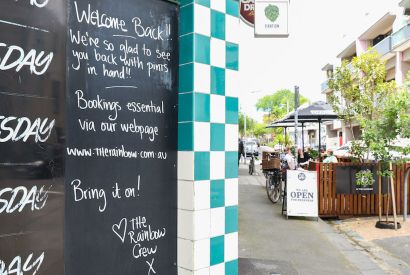 Welcome Back!!
We're so glad to see
you back with pints
in hand!!
Bookings essential
via our webpage
www.therainbow.com.au
Bring it on!
♡ THE
Rainbow
Crew
x
SDAY
SDAY
SDAY
SDAY
OPEN